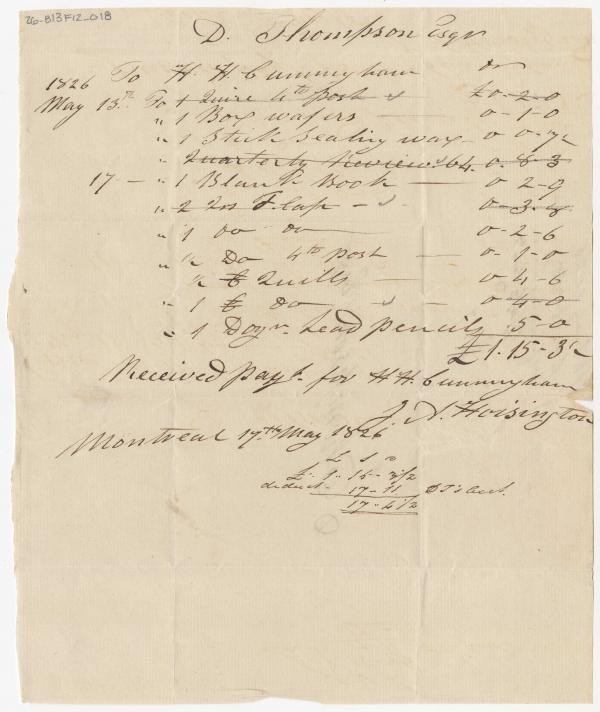 26-B13F12-018
D. Thompson Esqr
1826 To H. H. Cunningham Dr
May 13th To 1 Quire 4to Post £0-2-0
" 1 Box wafers — 0-1-0
" 1 Stick Sealing wax - 0 0-7½
" Quarterly Review 64. 0-8-3
17 — " 1 Blank Book — 0 2-9
" 2 Qrs F. Cap — 0-3-8
" 1 do do — 0-2-6
" ½ Do 4to Post — 0-1-0
½ Quills — 0 4-6
" 1 Do — 0 4-0
" 1 Dozn. Lead pencils 5-0
£1.15-3½
Received Payt. for H. H. Cunningham
J. A. Hoisington
Montreal 17th May 1826
£ S D
£. 1.. 15 - 3½
deduct - 17-11 DT's acct.
17-4½